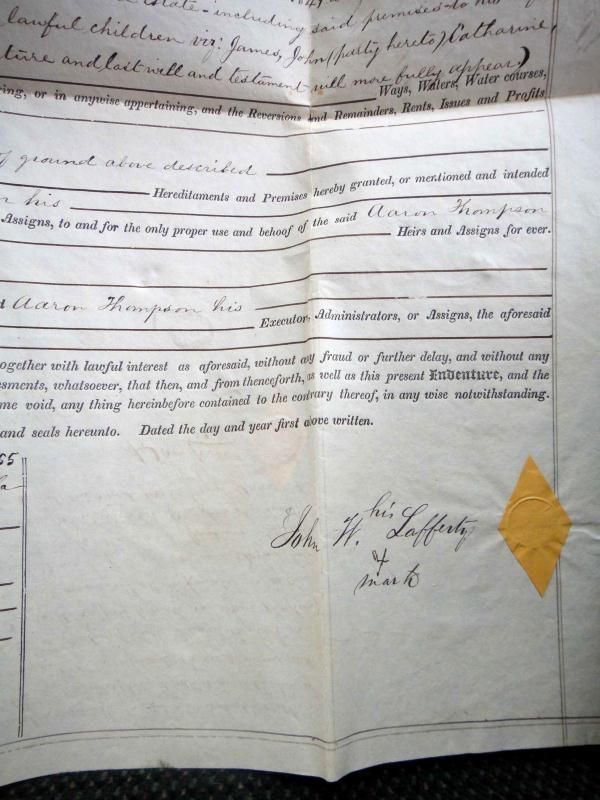 Estate - including said premises - to his
lawful children viz: James, John (party hereto) Catharine,
ture and last will and testament will more fully appear)
Ways, Waters, Water courses,
ing, or in anywise appertaining, and the Reversions and Remainders, Rents, Issues and Profits
of ground above described
Hereditaments and Premises hereby granted, or mentioned and intended
his
Assigns, to and for the only proper use and behoof of the said Aaron Thompson
Heirs and Assigns for ever.
Aaron Thompson his
Executor, Administrators, or Assigns, the aforesaid
together with lawful interest as aforesaid, without any fraud or further delay, and without any
esments, whatsoever, that then, and from thenceforth, as well as this present Indenture, and the
me void, any thing hereinbefore contained to the contrary thereof, in any wise notwithstanding.
and seals hereunto. Dated the day and year first above written.
55
his
John W. Lafferty
x
mark